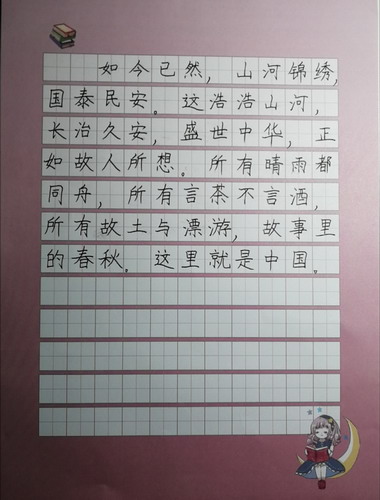 如今已然，山河锦绣，
国泰民安。这浩浩山河，
长治久安，盛世中华，正
如故人所想。所有晴雨都
同舟，所有言茶不言酒，
所有故土与漂游，故事里
的春秋。这里就是中国。